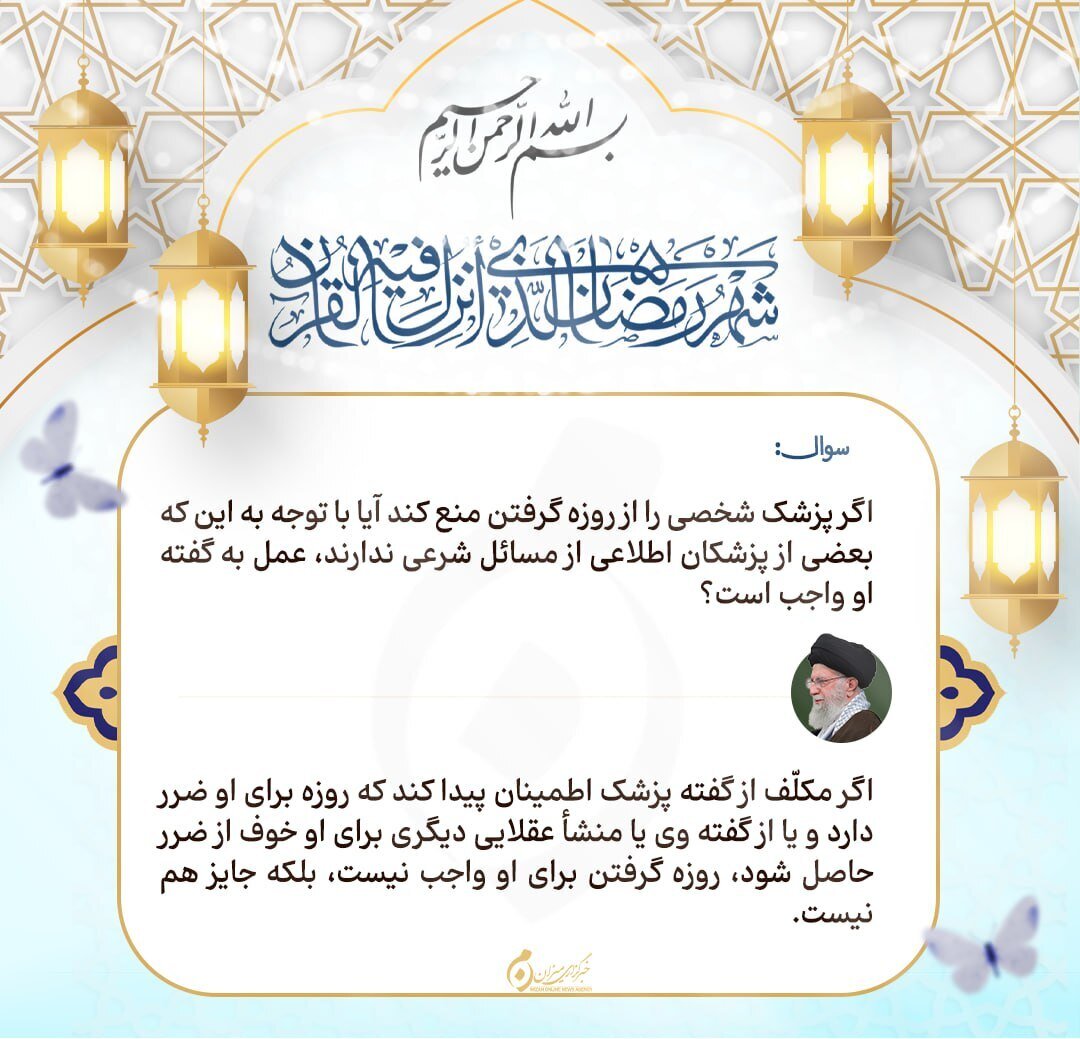 بسم الله الرحمن الرحیم
شهر رمضان الذی أنزل فیه القرآن
سوال:
اگر پزشک شخصی را از روزه گرفتن منع کند آیا با توجه به این که
بعضی از پزشکان اطلاعی از مسائل شرعی ندارند، عمل به گفته
او واجب است؟
اگر مکلّف از گفته پزشک اطمینان پیدا کند که روزه برای او ضرر
دارد و یا از گفته وی یا منشأ عقلایی دیگری برای او خوف از ضرر
حاصل شود، روزه گرفتن برای او واجب نیست، بلکه جایز هم
نیست.
خبرگزاری میزان
MIZAN ONLINE NEWS AGENCY